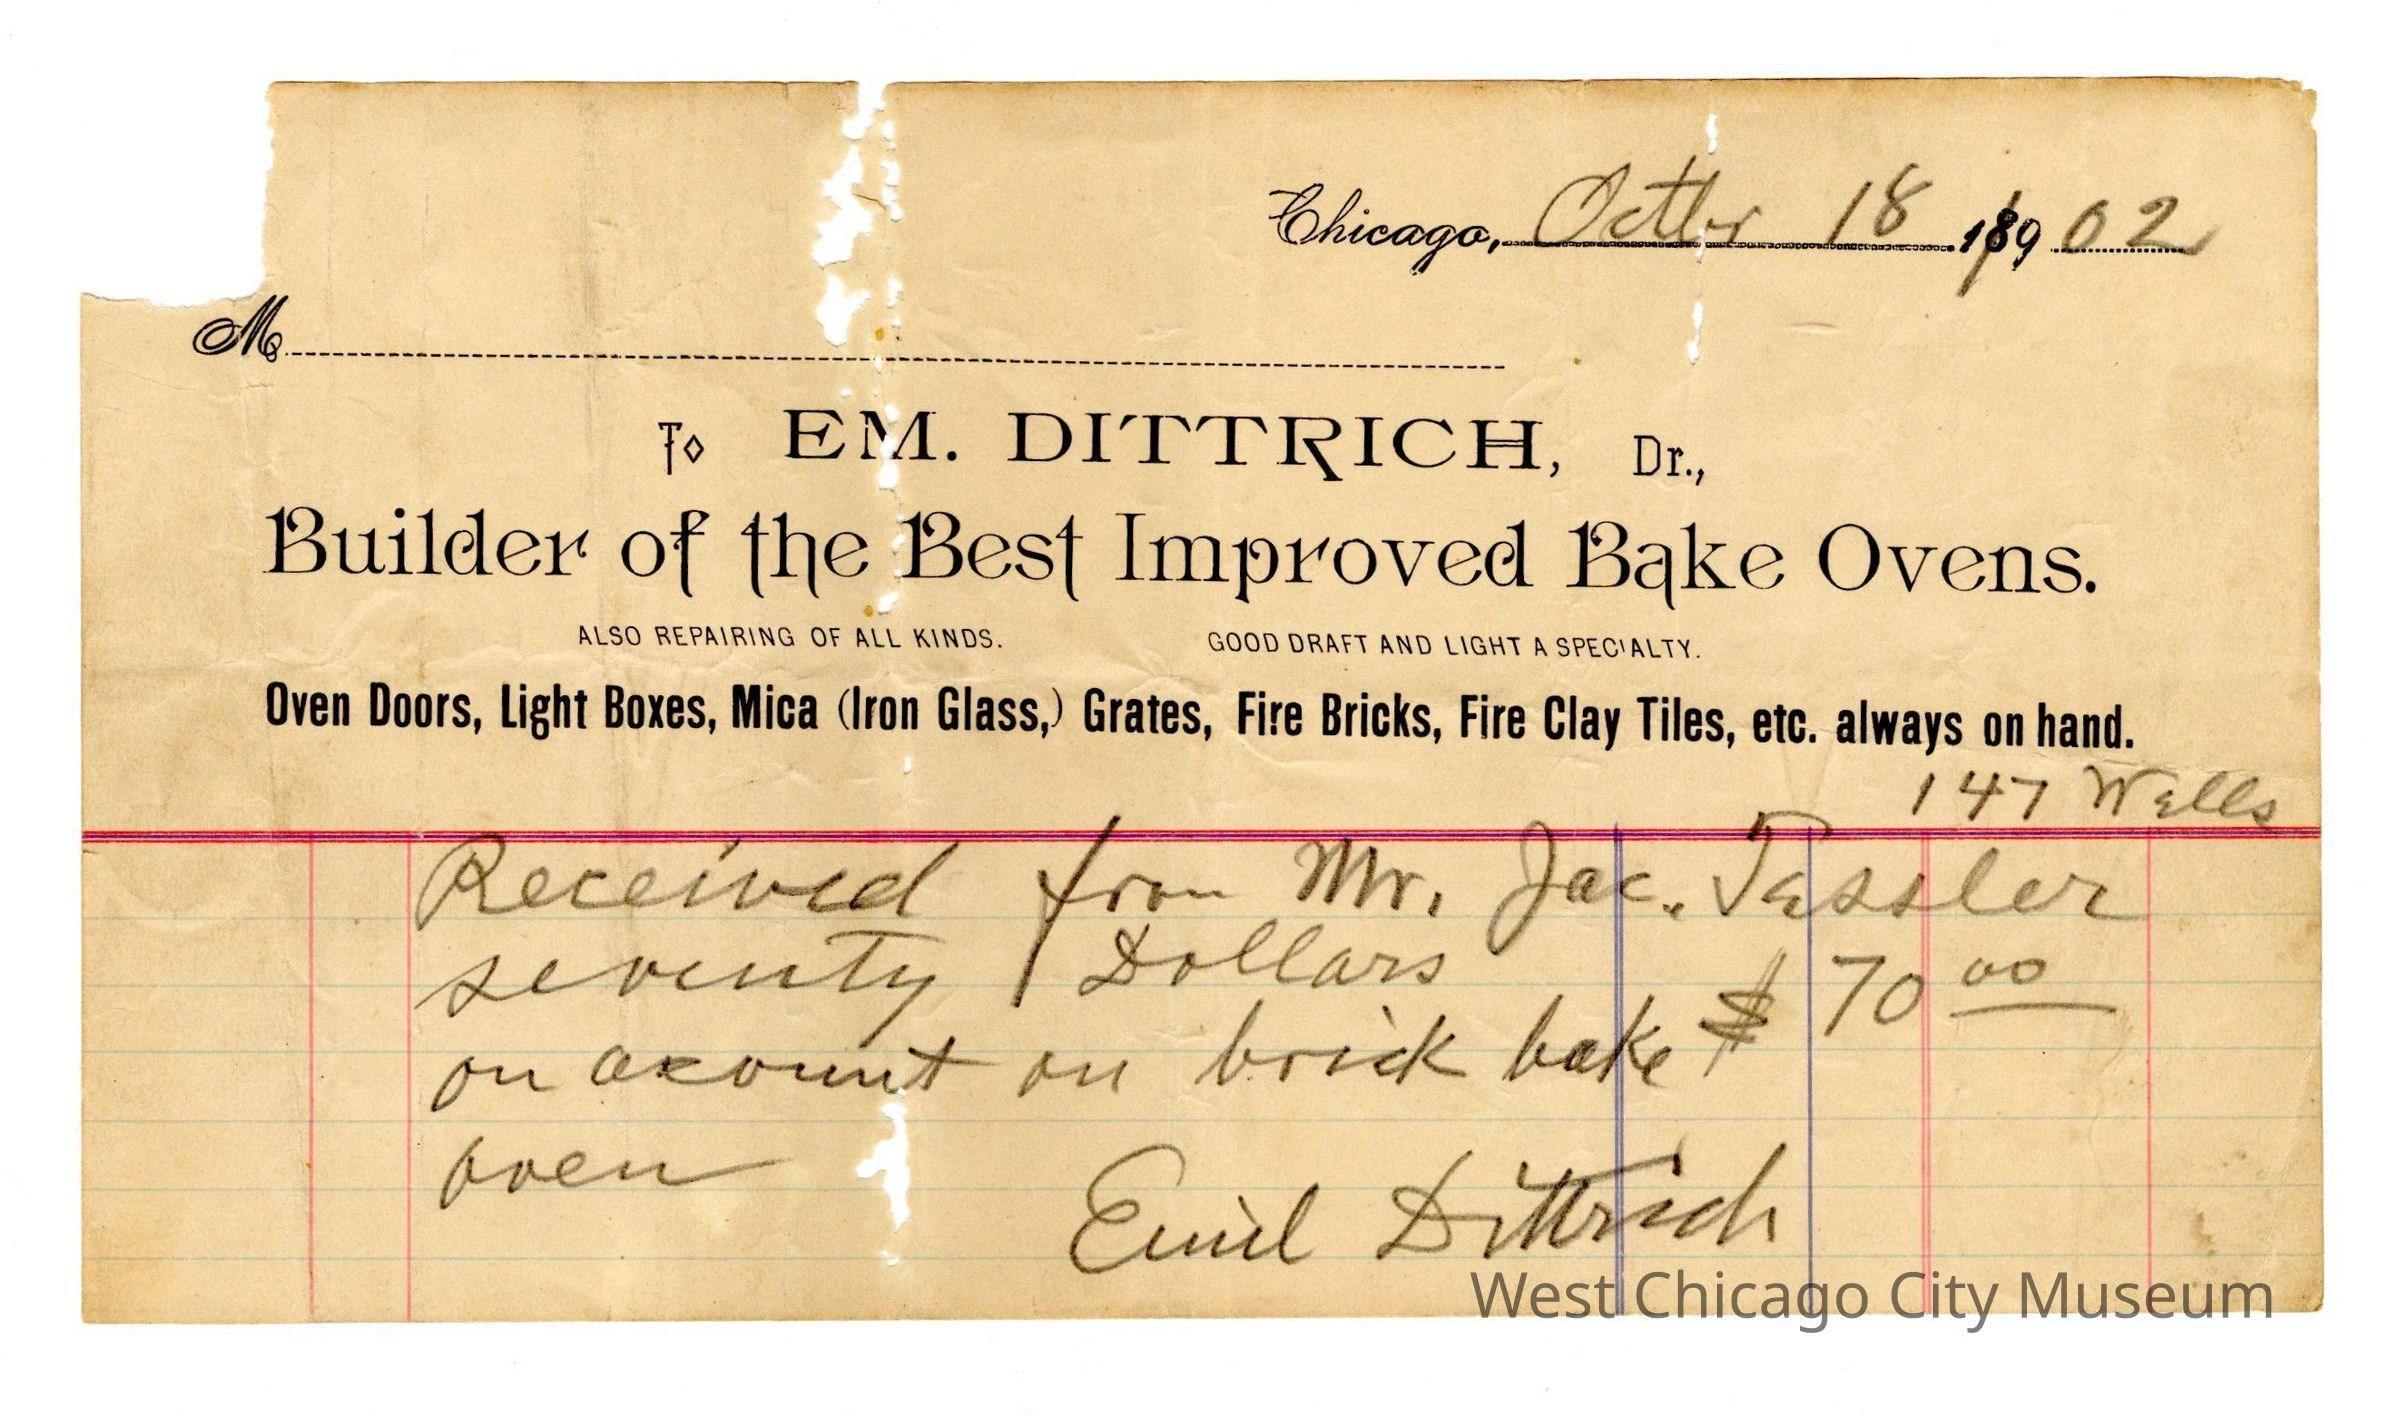 Chicago, Octbr 18 189 02
M
To EM. DITTRICH, Dr.,
Builder of the Best Improved Bake Ovens.
ALSO REPAIRING OF ALL KINDS. GOOD DRAFT AND LIGHT A SPECIALTY.
Oven Doors, Light Boxes, Mica (Iron Glass,) Grates, Fire Bricks, Fire Clay Tiles, etc. always on hand.
147 Wells
Received from Mr. Jac. Tessler
seventy Dollars $ 70 00
on acount on brick bake
oven
Emil Dittrich
West Chicago City Museum